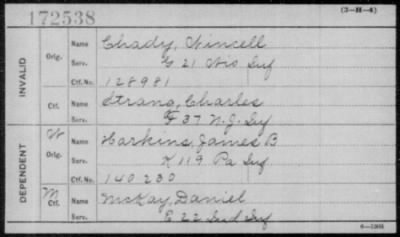 172538
(3-H-4)
INVALID
Orig.
Name Chady, Wincell
Serv. G 21 Wis Inf
Ctf. No. 128981
Ctf.
Name Strang, Charles
Serv. F 37 N.J. Inf
DEPENDENT
W Orig.
Name Harkins, James B
Serv. K 119 Pa Inf
Ctf. No. 140230
M Ctf.
Name McKay, Daniel
Serv. E 22 Ind Inf